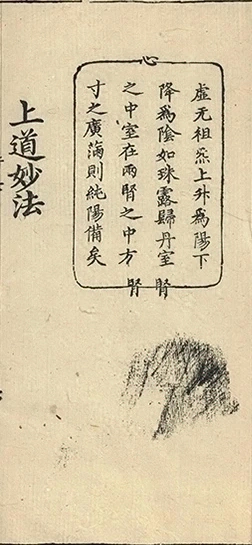 心
虚无祖炁上升為陽下
降為陰如珠露歸丹室
之中室在兩腎之中方
寸之廣滿則純陽備矣
腎
腎
上道妙法